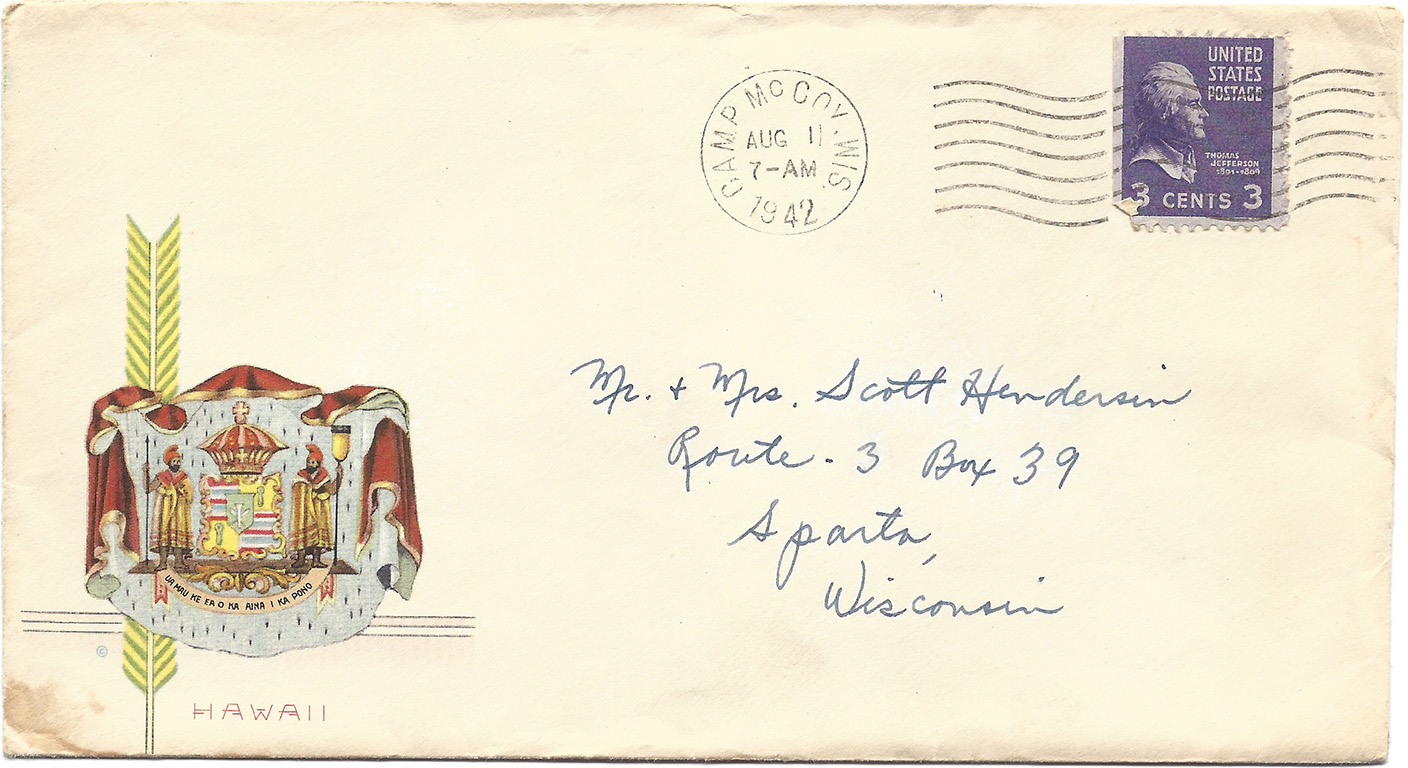 CAMP McCOY, WIS.
AUG 11
7-AM
1942
UNITED
STATES
POSTAGE
THOMAS
JEFFERSON
1801-1809
3 CENTS 3
Mr. + Mrs. Scott Hendersin
Route - 3 Box 39
Sparta,
Wisconsin
UA MAU KE EA O KA AINA I KA PONO
©
HAWAII